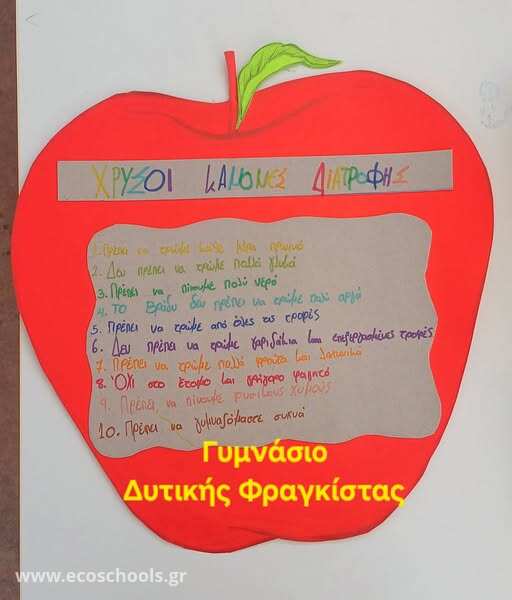 ΧΡΥΣΟΙ ΚΑΝΟΝΕΣ ΔΙΑΤΡΟΦΗΣ
1. Πρέπει να τρώμε κάθε μέρα πρωινό
2. Δεν πρέπει να τρώμε πολλά γλυκά
3. Πρέπει να πίνουμε πολύ νερό
4. Το βράδυ δεν πρέπει να τρώμε πολύ αργά
5. Πρέπει να τρώμε από όλες τις τροφές
6. Δεν πρέπει να τρώμε γαριδάκια και επεξεργασμένες τροφές
7. Πρέπει να τρώμε πολλά φρούτα και λαχανικά
8. Όχι στο έτοιμο και γρήγορο φαγητό
9. Πρέπει να πίνουμε φυσικούς χυμούς
10. Πρέπει να γυμναζόμαστε συχνά
Γυμνάσιο
Δυτικής Φραγκίστας
www.ecoschools.gr